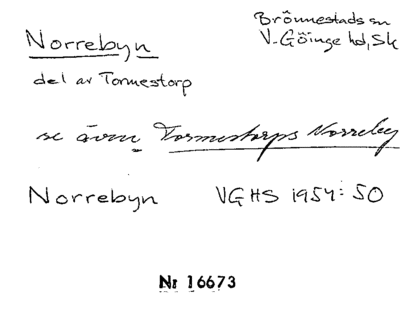 Norrebyn
Brönnestads sn
V. Göinge hd, Sk
del av Tormestorp
se även Tormestorps Norreby
Norrebyn VGHS 1954: 50
Nr 16673